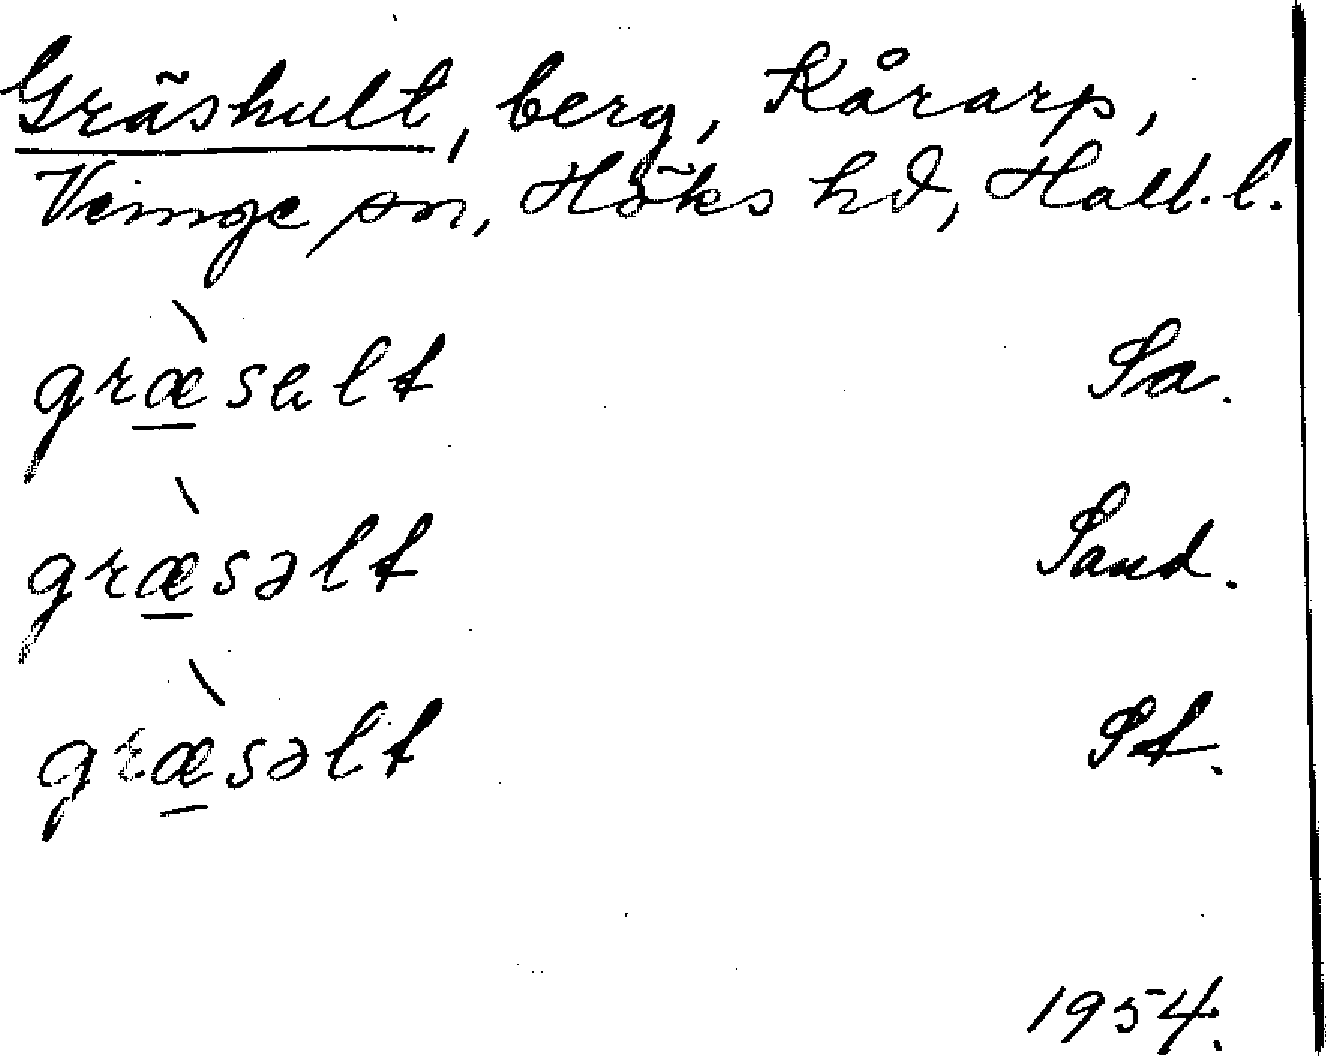 Gräshult, berg, Kårarp,
Veinge sn, Höks hd, Hall. l.
græ̀salt Sa.
græ̀səlt Sand.
græ̀səlt St.
1954.